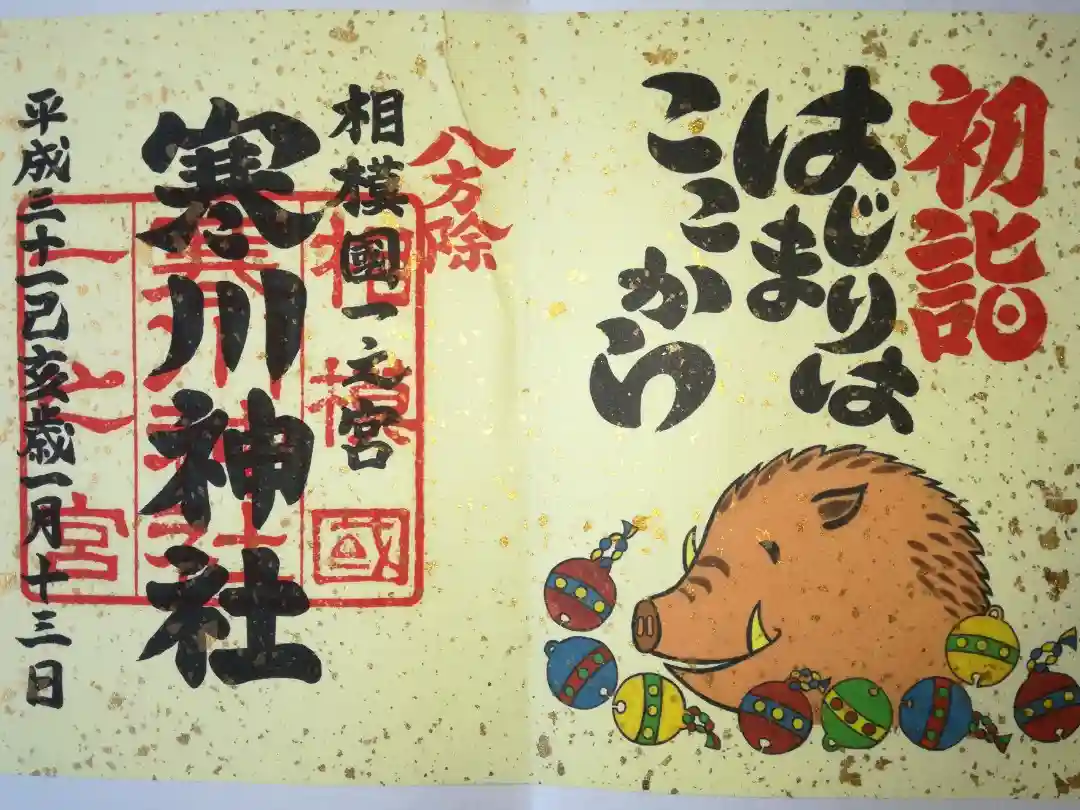 初詣
はじまりは
はじまりは
ここから
八方除
相模國一之宮
寒川神社
平成三十一己亥歳一月十三日
相模國
寒川神社
一之宮